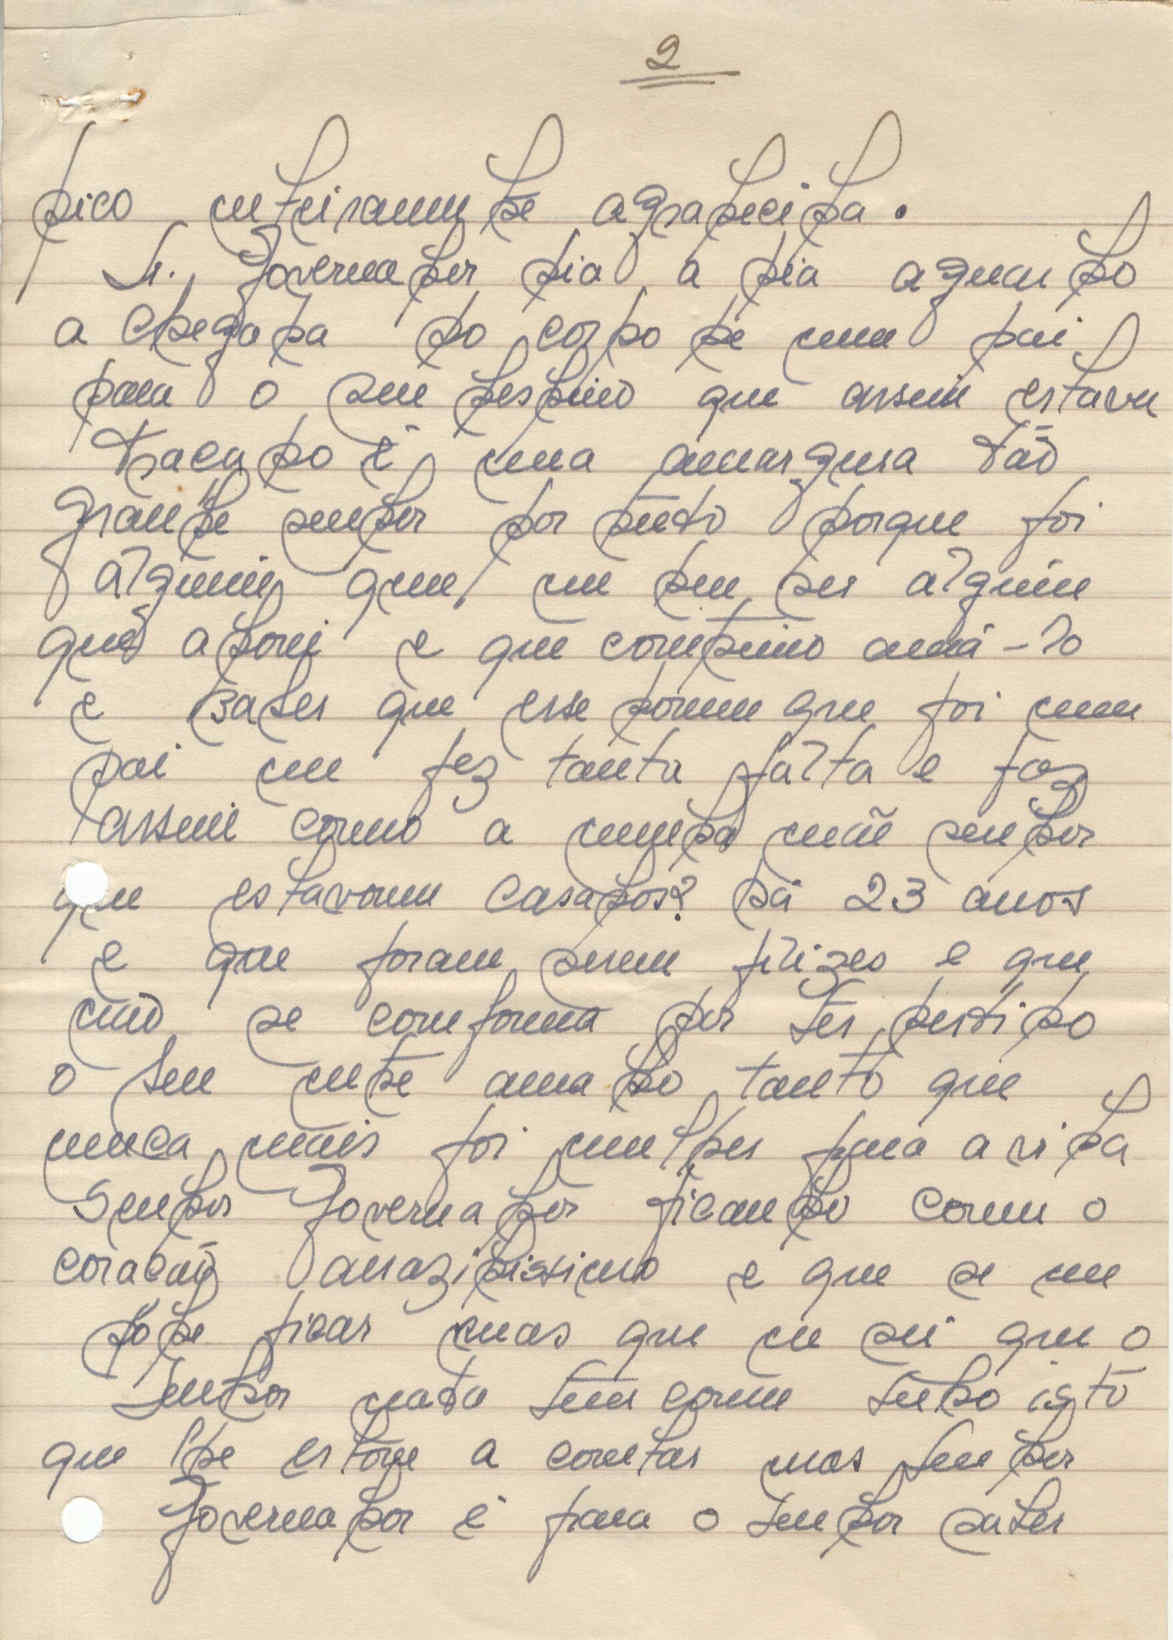 2
fico inteiramente agradecida.
Sr. Governador dia a dia aguardo
a chegada do corpo de meu pai
para o seu destino que assim estava
traçado é uma amargura tão
grande senhor por tudo porque foi
alguém que me deu ser alguém
que adorei e que continuo amá-lo
e saber que esse homem que foi meu
pai me fez tanta falta e faz
assim como a minha mãe senhor
que estavam casados há 23 anos
e que foram serem felizes e que
não se conforma por ter perdido
o seu ente amado tanto que
nunca mais foi mulher para a vida
Senhor Governador ficando com o
coração e que se me
pode ficar mas que eu sei que o
Senhor nada tem com tudo isto
que lhe estou a contar mas Senhor
Governador é para o Senhor saber